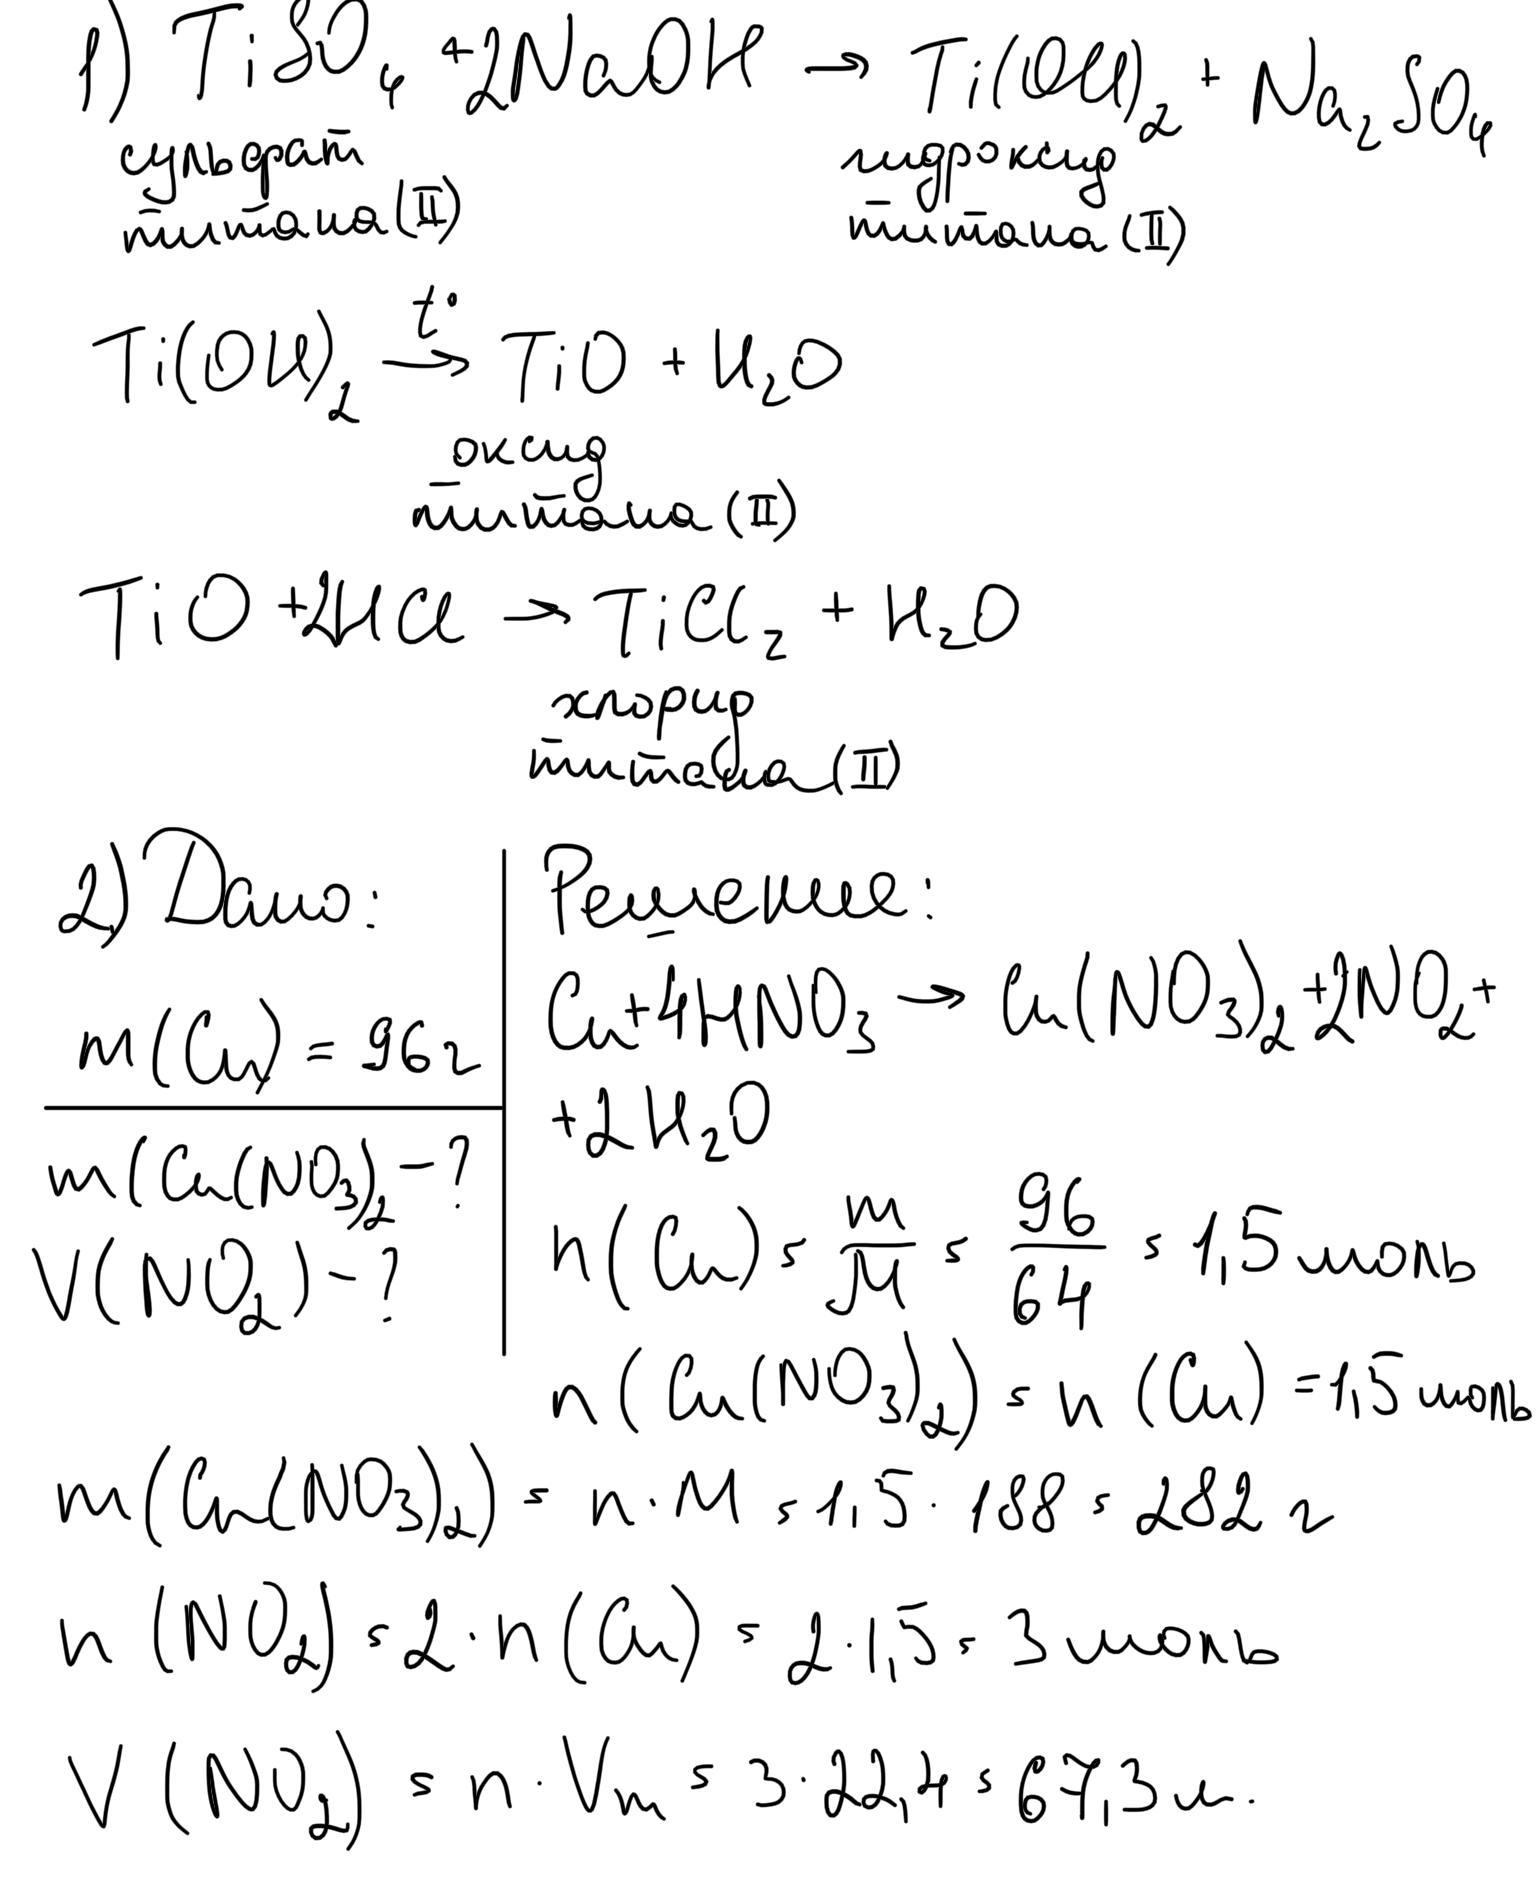 1) TiSO₄ + 2NaOH → Ti(OH)₂ + Na₂SO₄
сульфат гидроксид
титана (II) титана (II)
Ti(OH)₂ t° → TiO + H₂O
оксид
титана (II)
TiO + 2HCl → TiCl₂ + H₂O
хлорид
титана (II)
2) Дано:
m(Cu) = 96 г
m(Cu(NO₃)₂ - ?
V(NO₂) - ?
Решение:
Cu + 4HNO₃ → Cu(NO₃)₂ + 2NO₂ +
+ 2H₂O
n(Cu) = m/M = 96/64 = 1,5 моль
n(Cu(NO₃)₂) = n(Cu) = 1,5 моль
m(Cu(NO₃)₂) = n · M = 1,5 · 188 = 282 г
n(NO₂) = 2 · n(Cu) = 2 · 1,5 = 3 моль
V(NO₂) = n · Vm = 3 · 22,4 = 67,3 л.